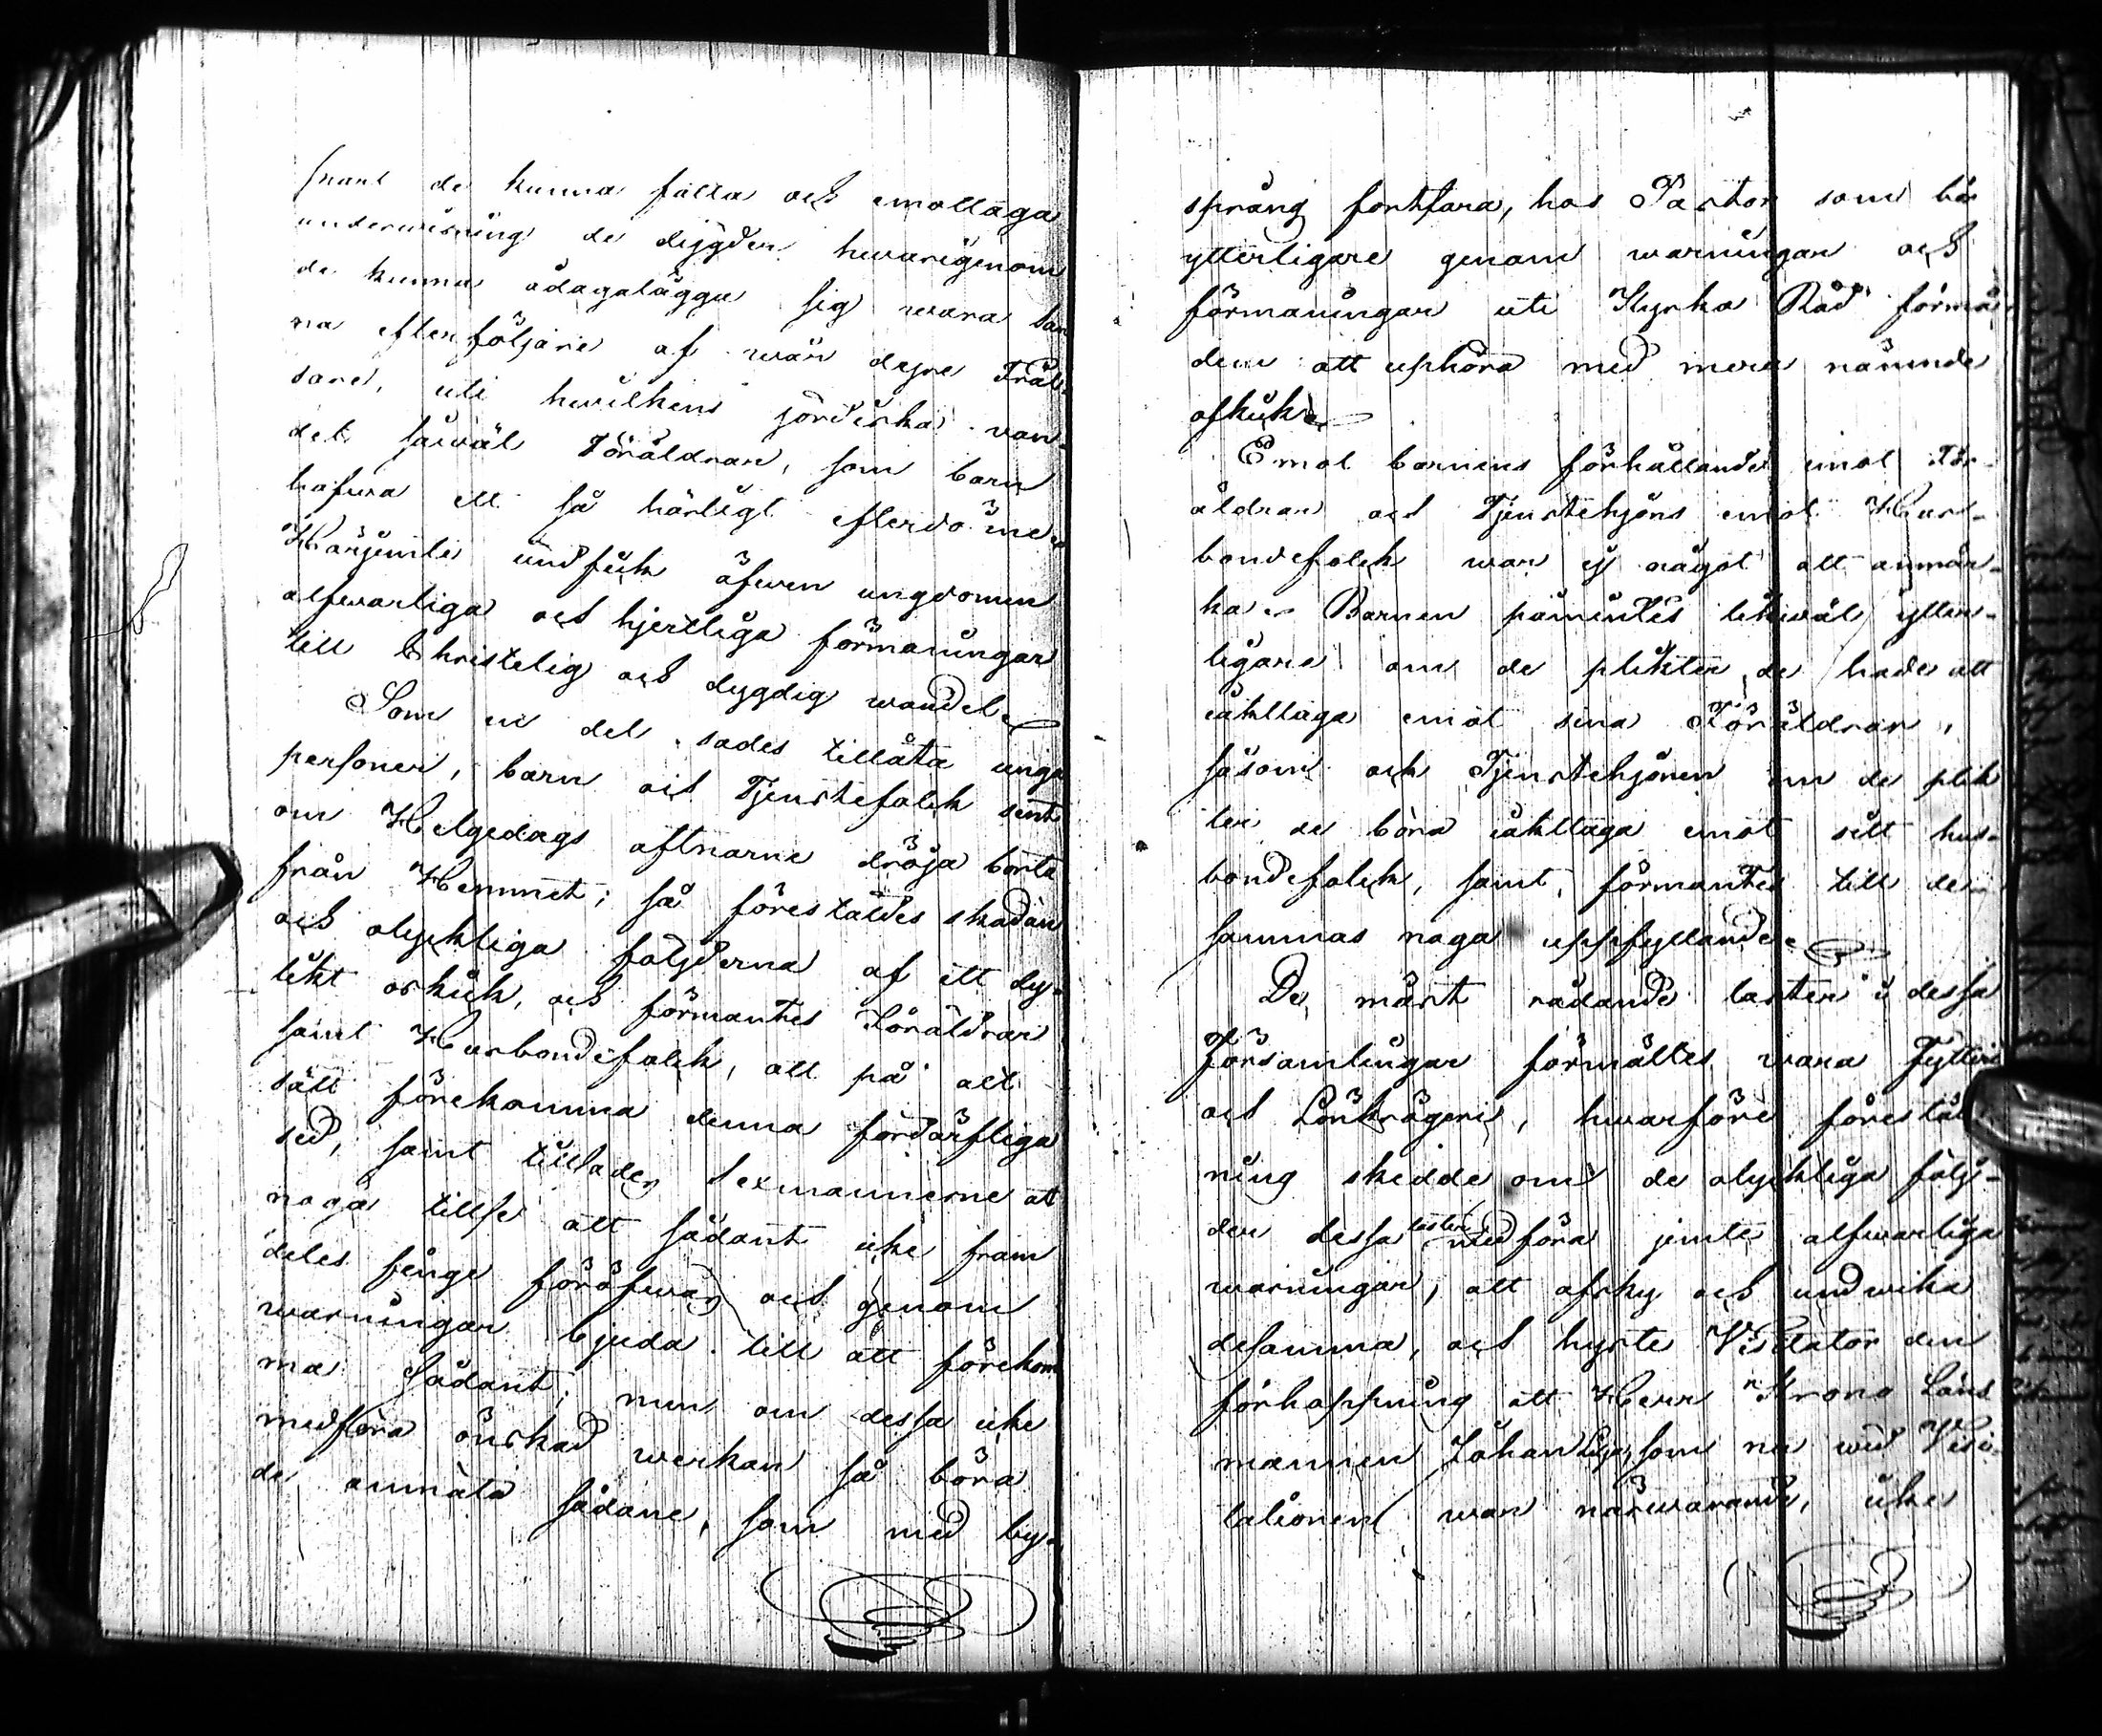 snart de kunna fatta och emottaga
underwisning de dygder hwarigenom
de kunna ådagalägga sig wara san
na efterföljare af wår dyre Fräl-
sare, uti hwilkens jordiska van-
del såwäl Föräldrar, som barn
hafwa ett så härligt efterdöme.
Härjemte undfick äfwen ungdomen
alfwarliga och hjertliga förmaningar
till Christelig och dygdig wandel
Som en del sades tillåta unga
personer, barn och Tjenstefolck sent
om Helgedags aftnarne dröja borta
från Hemmet; så förestäldes skadan
och olyckliga följderna af ett dy-
likt oskick, och förmantes Föräldrar
samt Husbondefolck, att på alt
sätt förekomma denna förderfliga
sed, samt tillsades Sexmannerne att
noga tillse att sådant icke fram
deles finge föröfwas och genom
warningar bjuda till att förekom
ma Sådant; men om dessa icke
medföra önskad werkan så böra
de anmäla sådane, som med by-
språng fortfara, hos Pastor som bör
ytterligare genom warningar och
förmaningar uti Kyrko Råd förmå
dem att uphöra med mera nämnde
oskick
Emot barnens förhållande emot För-
äldrar och Tjenstehjons emot Hus-
bondefolck war ej något att anmär-
ka. Barnen påmintes likwäl ytter-
ligare om de plikter de hade att
iakttaga emot sina Föräldrar,
såsom ock Tjenstehjonen om de plik
ter de böra iakttaga emot sitt hus-
bondefolck, samt förmantes till de-
sammas noga uppfyllande.
De mäst rådande laster i dessa
Församlingar förmältes wara Fylleri
och Lönkrögeri, hwarföre förestäl
ning skedde om de olyckliga följ-
der dessa laster medföra jemte alfwarliga
warningar, att afsky och undwika
desamma, och hyste Visitator den
förhoppning att Herr Krono Läns
mannen Johan som nu wid Visi
tationen war närwarande, icke